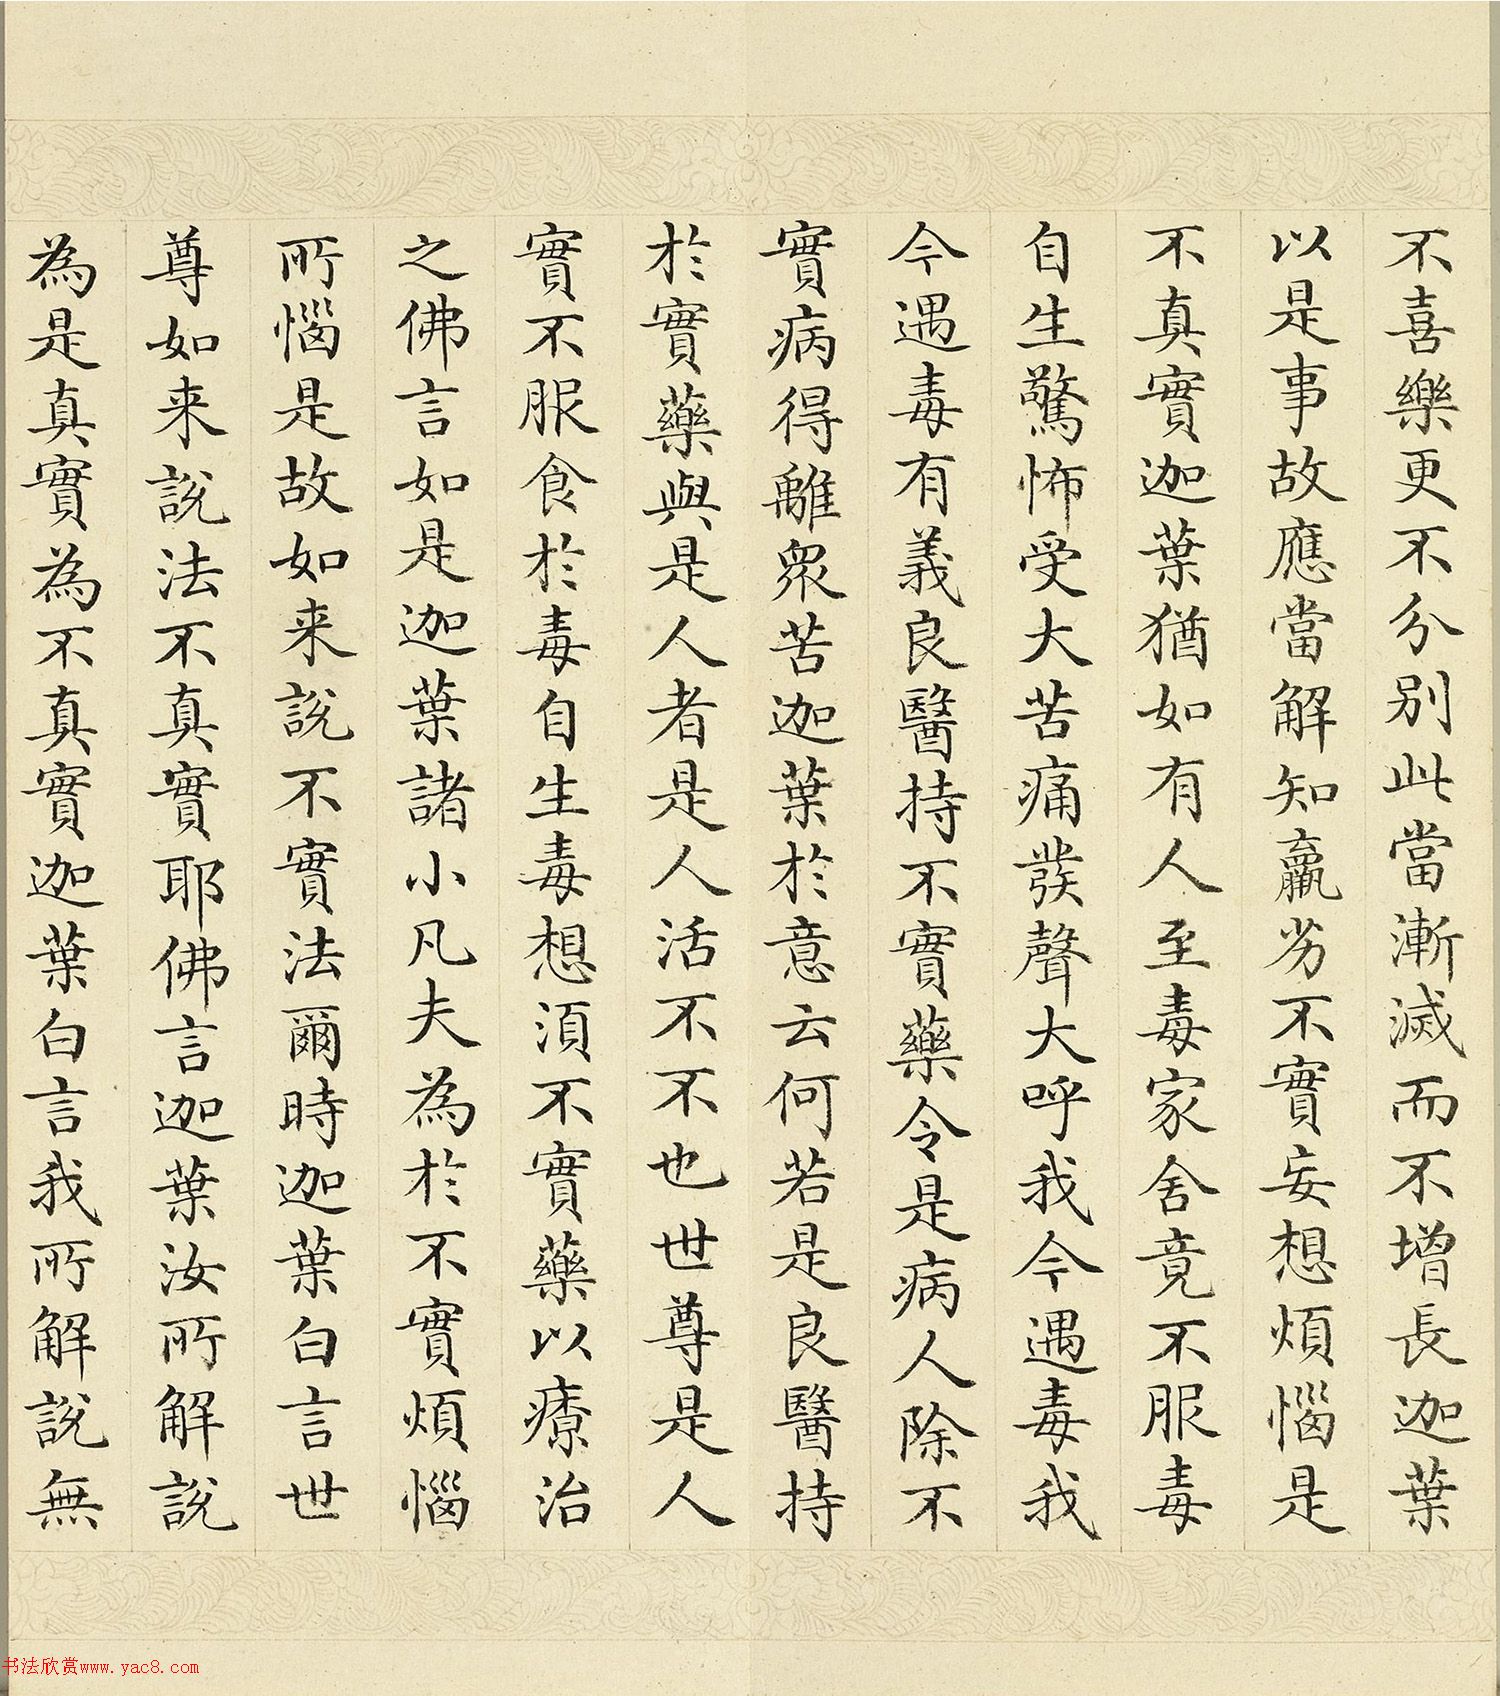 不喜樂更不分别此當漸滅而不增長迦葉
以是事故應當解知羸劣不實妄想煩惱是
不真實迦葉猶如有人至毒家舍竟不服毒
自生驚怖受大苦痛發聲大呼我今遇毒我
今遇毒有義良醫持不實藥令是病人除不
實病得離衆苦迦葉於意云何若是良醫持
於實藥與是人者是人活不不也世尊是人
實不服食於毒自生毒想須不實藥以療治
之佛言如是迦葉諸小凡夫為於不實煩惱
所惱是故如来說不實法爾時迦葉白言世
尊如来說法不真實耶佛言迦葉汝所解說
為是真實為不真實迦葉白言我所解說無
书法欣赏www.yac8.com